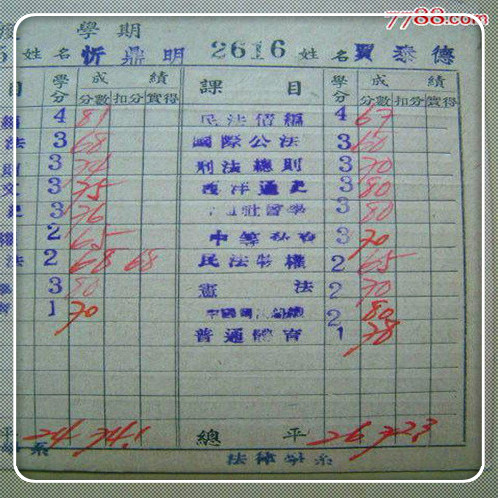 7788.com
學期
姓名 忻鼎明 2616 姓名 賈泰德
目 學分 成績 課目 學分 成績
分數 扣分 實得 分數 扣分 實得
編 4 81 民法債編 4 67
法 3 68 國際公法 3 60
則 3 74 刑法總則 3 70
3 75 西洋通史 3 80
3 76 社會學 3 80
2 65 3 70
法 2 68 68 民法物權 2 65
3 80 憲法 2 70
1 70 2 80
普通體育 1 78
24 74.1 總平 26 72.3
系 法律學系